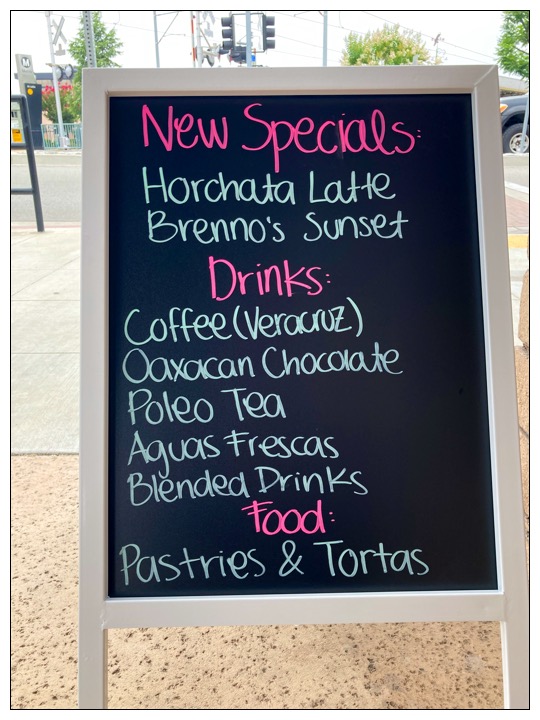 New Specials:
Horchata Latte
Brenno's Sunset
Drinks:
Coffee (Veracruz)
Oaxacan Chocolate
Poleo Tea
Aguas Frescas
Blended Drinks
Food:
Pastries & Tortas